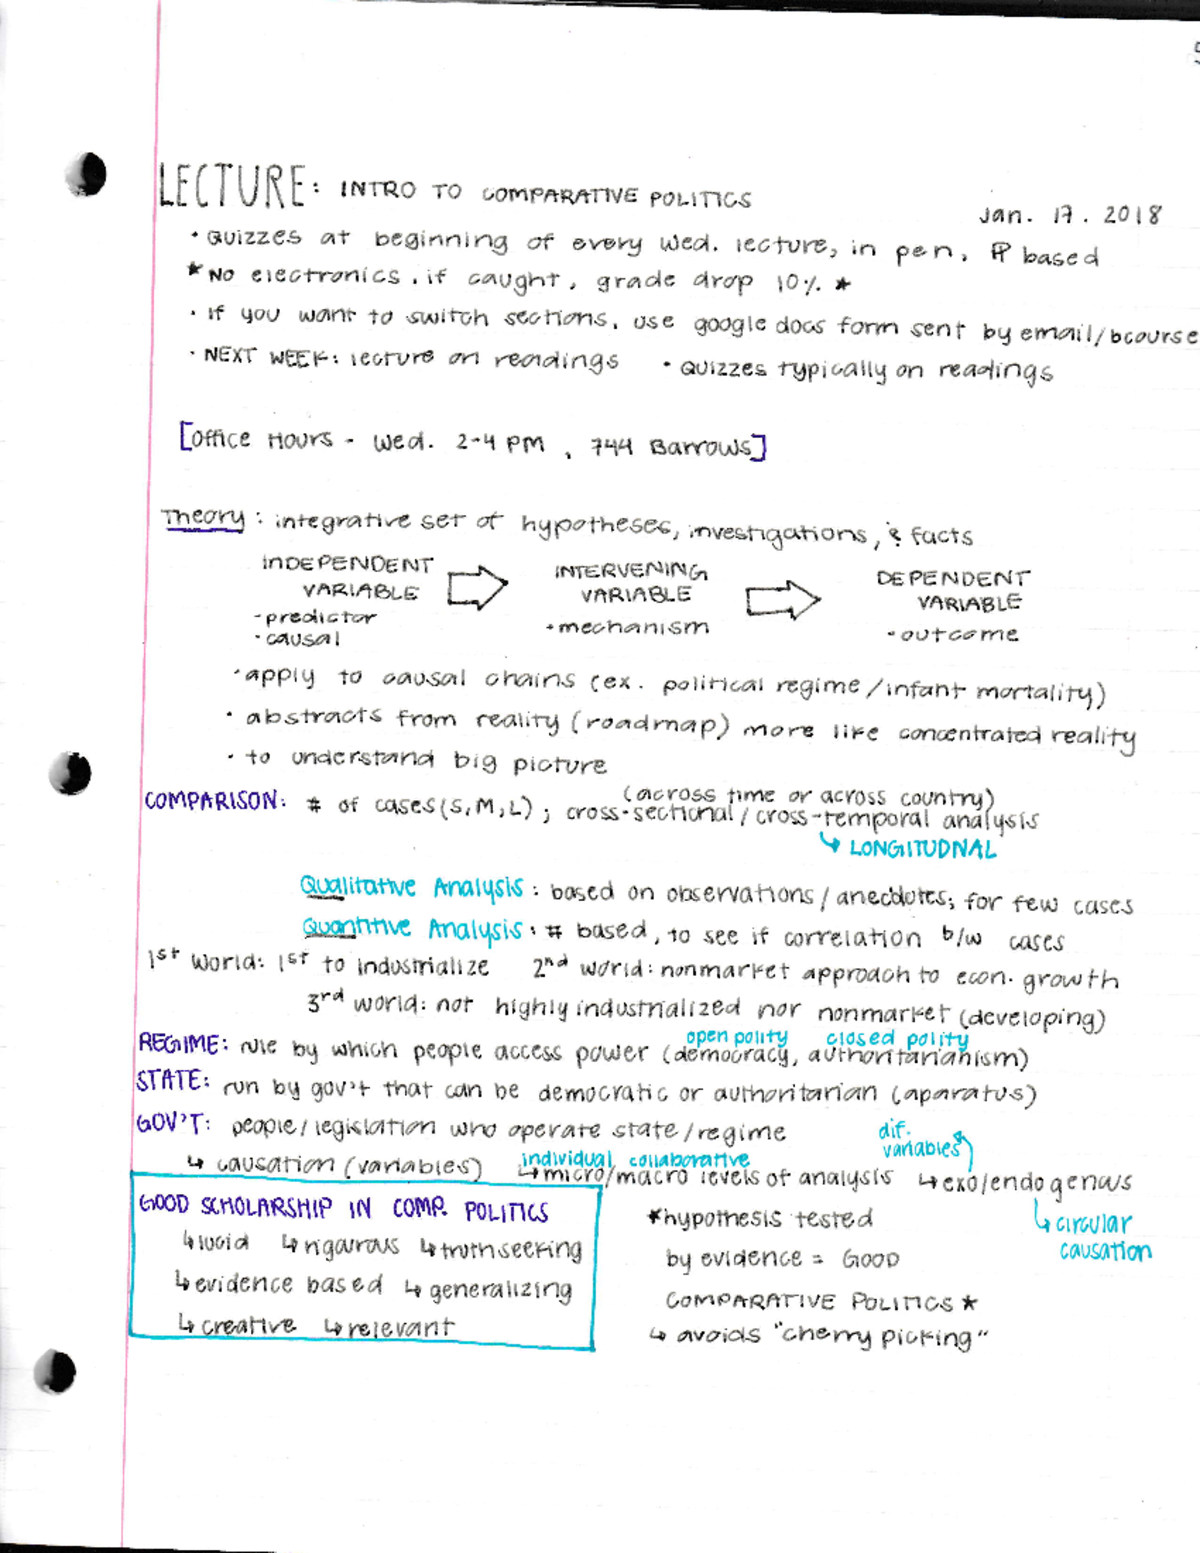 LECTURE: INTRO TO COMPARATIVE POLITICS
Jan. 17. 2018
· Quizzes at beginning of every Wed. lecture, in pen, PP based
*No electronics, if caught, grade drop 10% *
· If you want to switch sections, use google docs form sent by email/bcourse
· NEXT WEEK: lecture on readings · Quizzes typically on readings
[Office Hours - Wed. 2-4 PM, 744 Barrows]
Theory: integrative set of hypotheses, investigations, & facts
INDEPENDENT VARIABLE
- predictor
· causal
INTERVENING VARIABLE
· mechanism
DEPENDENT VARIABLE
· outcome
· apply to causal chains (ex. political regime/infant mortality)
· abstracts from reality (roadmap) more like concentrated reality
· to understand big picture
(across time or across country)
COMPARISON: # of cases (S,M,L); cross-sectional/cross-temporal analysis
↳ LONGITUDNAL
Qualitative Analysis: based on observations/anecdotes; for few cases
Quantitive Analysis: # based, to see if correlation b/w cases
1st World: 1st to industrialize 2nd world: nonmarket approach to econ. growth
3rd world: not highly industrialized nor nonmarket (developing)
open polity closed polity
REGIME: rule by which people access power (democracy, authoritarianism)
STATE: run by gov't that can be democratic or authoritarian (aparatus)
GOV'T: people/legislation who operate state/regime
dif. variables
individual collaborative
↳ causation (variables) ↳ micro/macro levels of analysis ↳ exo/endogenous
↳ circular causation
GOOD SCHOLARSHIP IN COMP. POLITICS
↳ lucid ↳ rigourous ↳ truthseeking
↳ evidence based ↳ generalizing
↳ creative ↳ relevant
*hypothesis tested
by evidence = GOOD
COMPARATIVE POLITICS *
↳ avoids "cherry picking"